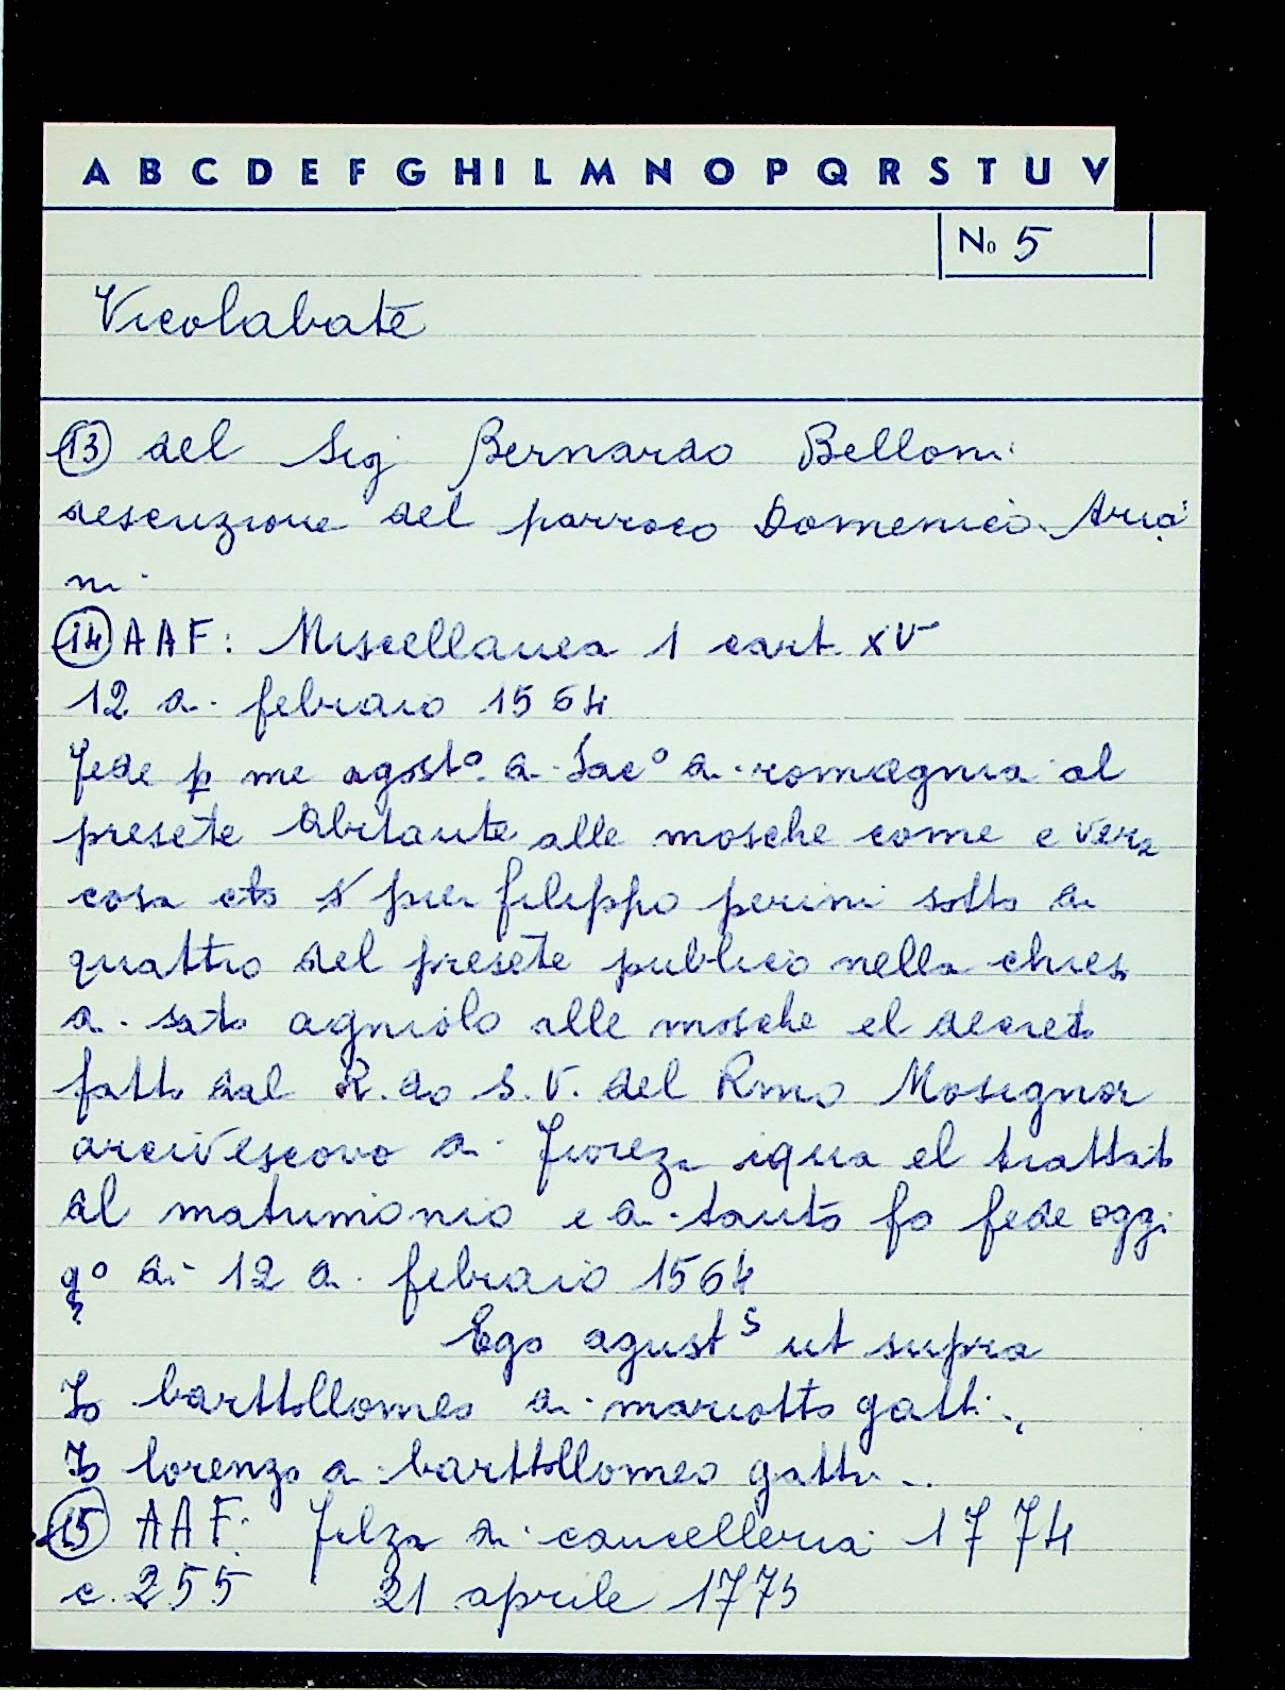 A B C D E F G H I L M N O P Q R S T U V
No 5
Vicolabate
13 del Sig Bernardo Belloni
descrizione del parroco Domenico Aria
ni
14 AAF: Miscellanea 1 cart. XV
12 di febraio 1564
fede p me agost° di Iac° di romagnia al
presete abitante alle mosche come e vera
cosa pier filippo perini sotto di
quattro del presete publico nella chies
di sato agniolo alle mosche el decreto
fatto dal R.do S.V. del Rmo Mosignor
arcivescovo di fioreza iqua el trattato
al matrimonio e di tanto fo fede oggi
q° di 12 di febraio 1564
Ego agust s ut supra
Io barttollomeo di mariotto gatti
Io lorenzo di barttollomeo gatti
15 AAF: filza di cancelleria 1774
c. 255 21 aprile 1775